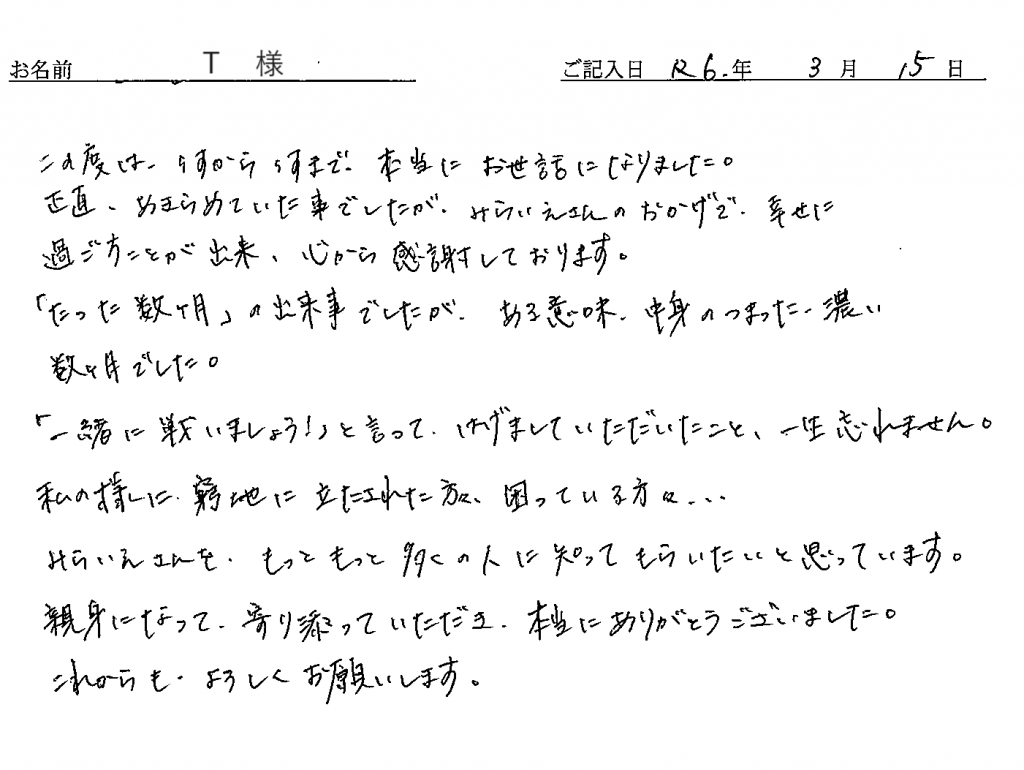 お名前 T 様 ご記入日 R6.年 3月 15日
この度は、1すから1すまで、本当にお世話になりました。
正直、あきらめていた事でしたが、みらいえさんのおかげで、幸せに
過ごすことが出来、心から感謝しております。
「たった数ヶ月」の出来事でしたが、ある意味、中身のつまった、濃い
数ヶ月でした。
「一緒に戦いましょう!」と言って、はげましていただいたこと、一生忘れません。
私の様に、窮地に立たされた方々、困っている方々...
みらいえさんを、もっともっと多くの人に知ってもらいたいと思っています。
親身になって、寄り添っていただき、本当にありがとうございました。
これからも、よろしくお願いします。